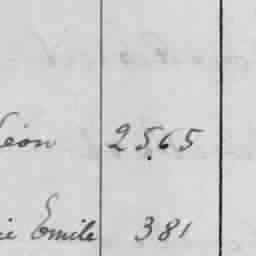 Léon 2565
ie Emile 381